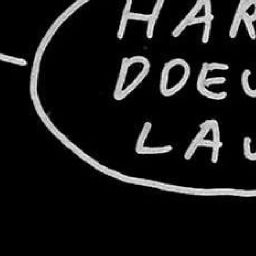 HAR
DOE
LA